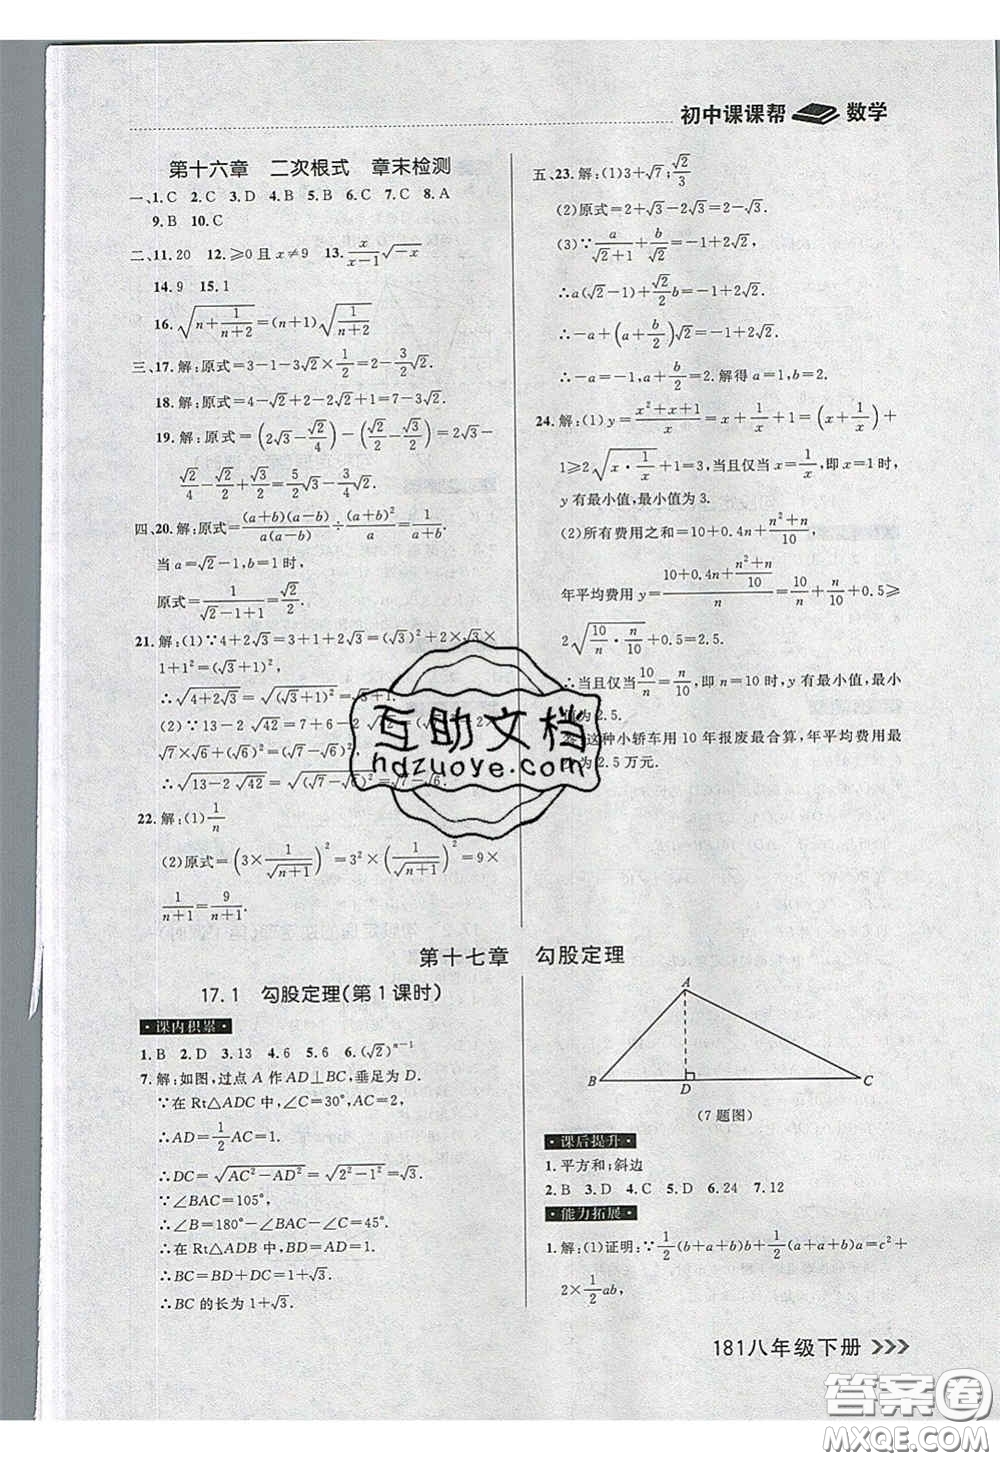 初中课课帮 数学
第十六章 二次根式 章末检测
一、1.C 2.C 3.D 4.B 5.B 6.C 7.C 8.A
9.B 10.C
二、11.20 12.≥0且x≠9 13.x/(x−1)√(−x)
14.9 15.1
16.√(n+1/(n+2))=(n+1)√(1/(n+2))
三、17.解:原式=3−1−3√2×1/2=2−3/2√2.
18.解:原式=4−√2+2−2√2+1=7−3√2.
19.解:原式=(2√3−√2/4)−(√2/2−√3/2)=2√3−
√2/4−√2/2+√3/2=5/2√3−3/4√2.
四、20.解:原式=(a+b)(a−b)/a(a−b)÷(a+b)²/a=1/(a+b).
当a=√2−1,b=1时,
原式=1/(√2−1+1)=√2/2.
21.解:(1)∵4+2√3=3+1+2√3=(√3)²+2×√3×
1+1²=(√3+1)²,
∴√(4+2√3)=√(√3+1)²=√3+1.
(2)∵13−2√42=7+6−2√42=(√7)²−2×
√7×√6+(√6)²=(√7−√6)²,
∴√(13−2√42)=√(√7−√6)²=√7−√6.
22.解:(1)1/n
(2)原式=(3×1/√(n+1))²=3²×(1/√(n+1))²=9×
1/(n+1)=9/(n+1).
五、23.解:(1)3+√7;√2/3
(2)原式=2+√3−2√3=2−√3.
(3)∵a/(√2+1)+b/√2=−1+2√2,
∴a(√2−1)+√2/2b=−1+2√2.
∴−a+(a+b/2)√2=−1+2√2.
∴−a=−1,a+b/2=2.解得a=1,b=2.
24.解:(1)y=(x²+x+1)/x=x+1/x+1=(x+1/x)+
1≥2√(x·1/x)+1=3,当且仅当x=1/x,即x=1时,
y有最小值,最小值为3.
(2)所有费用之和=10+0.4n+(n²+n)/10,
年平均费用y=(10+0.4n+(n²+n)/10)/n=10/n+n/10+0.5≥
2√(10/n·n/10)+0.5=2.5.
∴当且仅当10/n=n/10,即n=10时,y有最小值,最小
为2.5.
这种小轿车用10年报废最合算,年平均费用最
为2.5万元.
第十七章 勾股定理
17.1 勾股定理(第1课时)
·课内积累·
1.B 2.D 3.13 4.6 5.6 6.(√2)ⁿ⁻¹
7.解:如图,过点A作AD⊥BC,垂足为D.
∵在Rt△ADC中,∠C=30°,AC=2,
∴AD=1/2AC=1.
∴DC=√(AC²−AD²)=√(2²−1²)=√3.
∵∠BAC=105°,
∴∠B=180°−∠BAC−∠C=45°.
∴在Rt△ADB中,∠BAD=∠B=45°.
∴BD=AD=1.
∴BC=BD+DC=1+√3.
∴BC的长为1+√3.
A
B D C
(7题图)
·课后提升·
1.平方和;斜边
2.B 3.D 4.C 5.D 6.24 7.12
·能力拓展·
1.解:(1)证明:∵1/2(b+a+b)b+1/2(a+a+b)a=c²+
2×1/2ab,
181八年级下册
互助文档
hdzuoye.com
答案圈
MXQE.COM